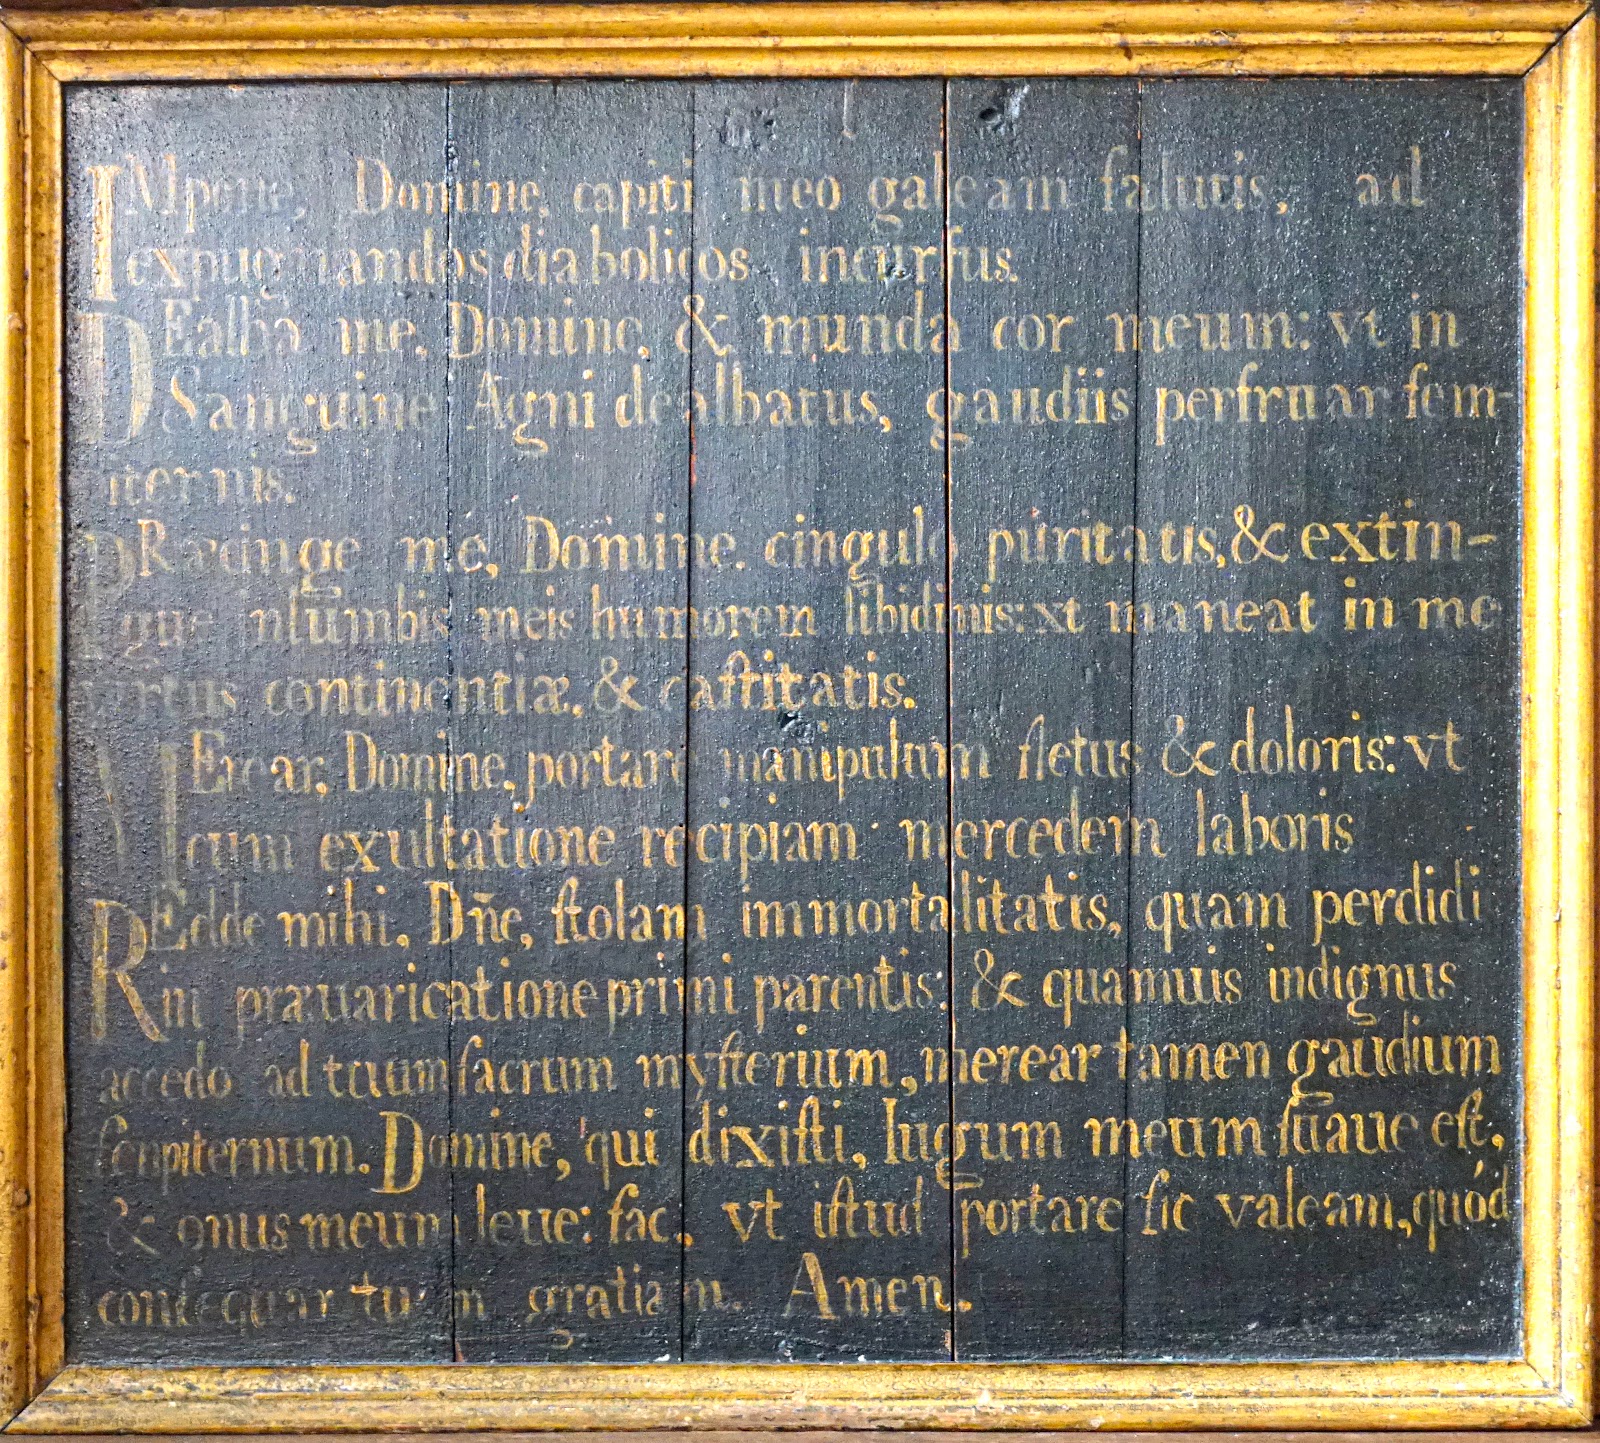 IMpone, Domine, capiti meo galeam ſalutis, ad
expugnandos diabolicos incurſus.
DEalba me, Domine, & munda cor meum: vt in
Sanguine Agni dealbatus, gaudiis perfruar ſem-
iternis.
PRæcinge me, Domine, cingulo puritatis, & extin-
gue in lumbis meis humorem libidinis: vt maneat in me
virtus continentiæ, & caſtitatis.
MErear, Domine, portare manipulum fletus & doloris: vt
cum exultatione recipiam mercedem laboris
REdde mihi, Dñe, ſtolam immortalitatis, quam perdidi
in præuaricatione primi parentis: & quamuis indignus
accedo ad tuum ſacrum myſterium, merear tamen gaudium
ſempiternum. Domine, qui dixiſti, Iugum meum ſuaue eſt,
& onus meum leue: fac, vt iſtud portare ſic valeam, quód
conſequar tuam gratiam. Amen.